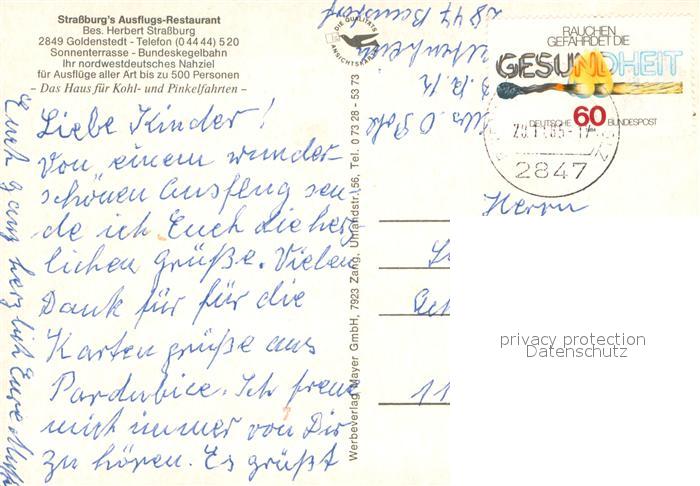 Straßburg's Ausflugs-Restaurant
Bes. Herbert Straßburg
2849 Goldenstedt - Telefon (0 44 44) 5 20
Sonnenterrasse - Bundeskegelbahn
Ihr nordwestdeutsches Nahziel
für Ausflüge aller Art bis zu 500 Personen
- Das Haus für Kohl- und Pinkelfahrten -
Liebe Kinder!
Von einem wunder-
schönen Ausflug sen-
de ich Euch die herz-
lichen grüße. Vielen
Dank für für die
Karten grüße aus
Pardubice. Ich freue
mich immer von Dir
zu hören. Es grüßt
Euch ganz herzlich Eure
DIE QUALITÄTS
ANSICHTSKARTE
Werbeverlag Mayer GmbH, 7923 Zang, Uhlandstr. 56, Tel. 0 73 28 - 53 73
2847
RAUCHEN
GEFÄHRDET DIE
GESUNDHEIT
DEUTSCHE 60 BUNDESPOST
2847
Herrn
11
privacy protection
Datenschutz